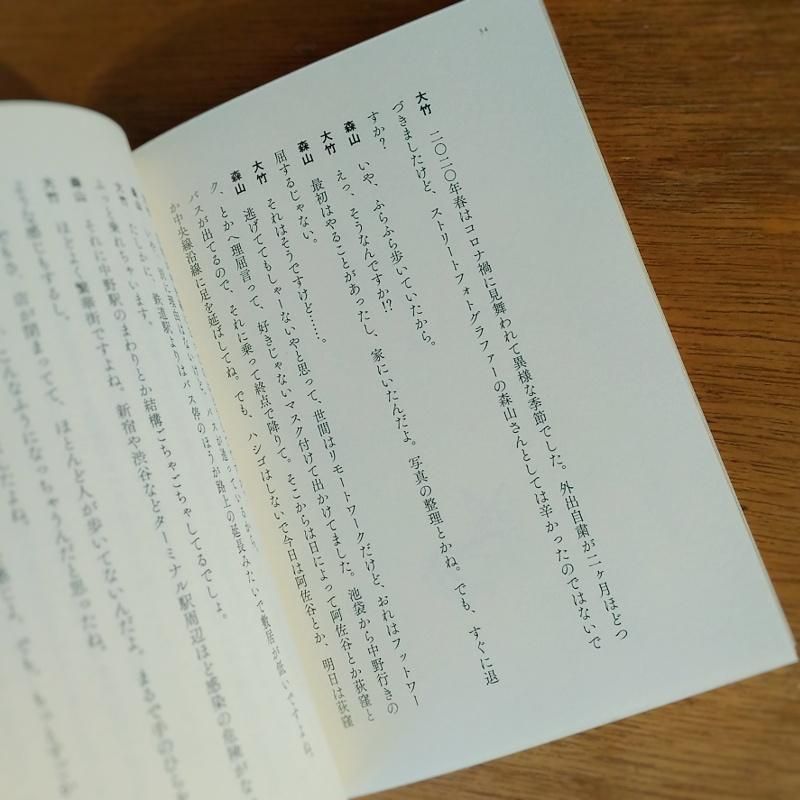 34
大竹　二〇二〇年春はコロナ禍に見舞われて異様な季節でした。外出自粛が二ヶ月ほどつ
づきましたけど、ストリートフォトグラファーの森山さんとしては辛かったのではないで
すか？
森山　いや、ふらふら歩いていたから。
大竹　えっ、そうなんですか!?
森山　最初はやることがあったし、家にいたんだよ。写真の整理とかね。でも、すぐに退
屈するじゃない。
大竹　それはそうですけど……。
森山　逃げててもしゃーないやと思って、世間はリモートワークだけど、おれはフットワー
ク、とかへ理屈言って、好きじゃないマスク付けて出かけてました。池袋から中野行きの
バスが出てるので、それに乗って終点で降りて。そこからは日によって阿佐谷とか荻窪と
か中央線沿線に足を延ばしてね。でも、ハシゴはしないで今日は阿佐谷とか、明日は荻窪
鉄道駅よりはバス停のほうが路上の延長みたいで敷居が低いですよね。
ふっと乗れちゃいます。
森山　それに中野駅のまわりとか結構ごちゃごちゃしてるでしょ。
大竹　ほどよく繁華街ですよね。新宿や渋谷などターミナル駅周辺ほど感染の危険がな
ような感じもするし。
店が閉まってて、ほとんど人が歩いてないんだよ。まるで手のひら
こんなふうになっちゃうんだと思ったね。